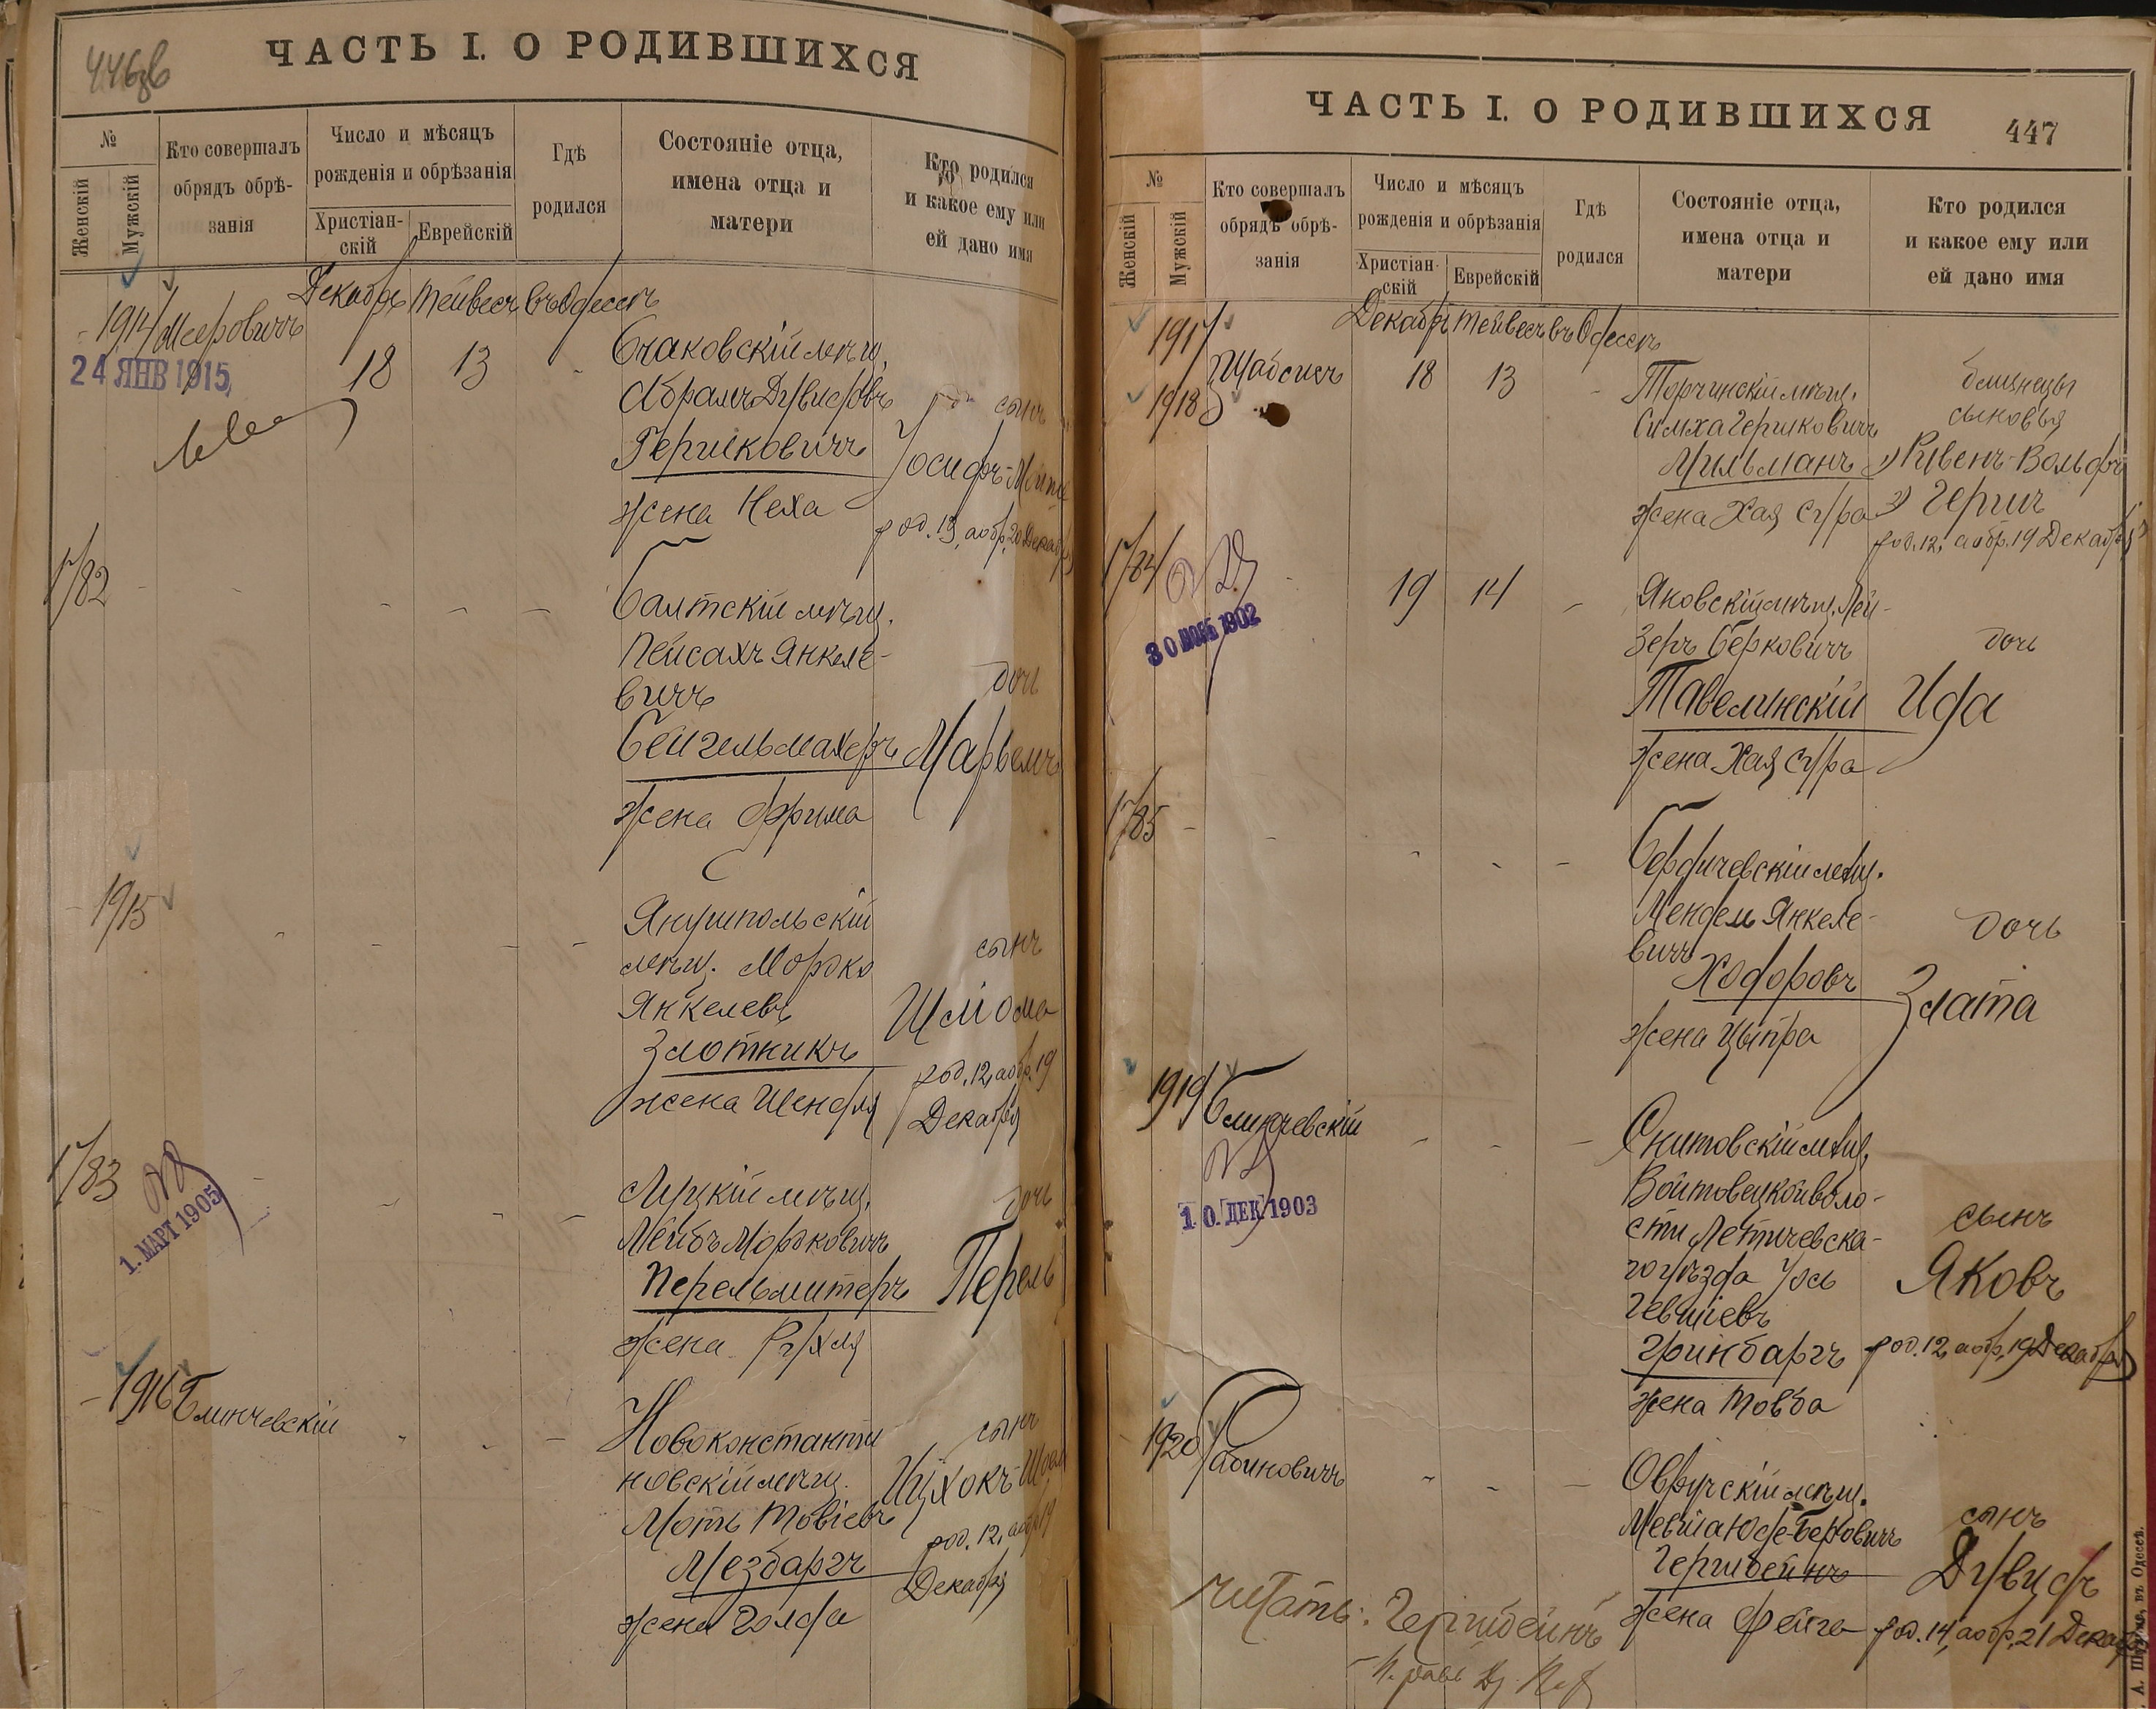 446об
ЧАСТЬ I. О РОДИВШИХСЯ
№
Женскій
Мужскій
Кто совершалъ
обрядъ обрѣ-
занія
Число и мѣсяцъ
рожденія и обрѣзанія
Христіан-
скій
Еврейскій
Гдѣ
родился
Состояніе отца,
имена отца и
матери
Кто родился
и какое ему или
ей дано имя
Декабрь Тейвесъ въ Одессѣ
1914 Мееровичъ
24 ЯНВ 1915
18 13 -
Очаковскій мѣщ.
Абрамъ Дувидовъ
Гершковичъ
жена Неха
сынъ
Іосифъ-
род. 13, а обр. 20 Декабря
1782 - - - - -
Балтскій мѣщ.
Пейсахъ Янкеле-
вичъ
Бейгельмахеръ
жена Фрима
дочь
1915 - - - -
Янушпольскій
мѣщ. Мордко
Янкелевъ
Злотникъ
жена Шендля
сынъ
Шліома
род. 12, а обр. 19
Декабря
1783
1. МАРТ 1905
- - - -
Луцкій мѣщ.
Лейбъ Мордковичъ
Перельмитеръ
жена Рухля
дочь
Перель
1916 Блинчевскій
- - - -
Новоконстанти
новскій мѣщ.
Мотъ Товіевъ
Мезбаргъ
жена Голда
сынъ
Ицхокъ-
род. 12, а обр. 19
Декабря
ЧАСТЬ I. О РОДИВШИХСЯ
447
№
Женскій
Мужскій
Кто совершалъ
обрядъ обрѣ-
занія
Число и мѣсяцъ
рожденія и обрѣзанія
Христіан-
скій
Еврейскій
Гдѣ
родился
Состояніе отца,
имена отца и
матери
Кто родился
и какое ему или
ей дано имя
Декабрь Тейвесъ въ Одессѣ
1917
1918
Шабсисъ
18 13 -
Торчинскій мѣщ.
Симха Гершковичъ
Мильманъ
жена Хая Сура
близнецы
сыновья
1) Рувенъ-Вольфъ
2) Гершъ
род. 12, а обр. 19 Декабря
1784
30 НОЯБ 1902
19 14 -
Яновскій мѣщ. Лей-
зеръ Берковичъ
Тавелинскій
жена Хая Сура
дочь
Ида
1785 - - - - -
Бердичевскій мѣщ.
Мендель Янкеле-
вичъ
Ходоровъ
жена Ципра
дочь
Злата
1919 Блинчевскій
10. ДЕК 1903
- - -
Снитовскій мѣщ.
Войтовецкой воло-
сти Летичевска-
го уѣзда Іось
Гевшіевъ
Гринбаргъ
жена Товба
сынъ
Яковъ
род. 12, а обр. 19 Декабря
1920 Рабиновичъ
- - -
Овручскій мѣщ.
Мевша Юде-Берковичъ
Герибейнъ
жена Фейга
сынъ
Дувидъ
род. 14, а обр. 21 Декабря
читать: Гершбейнъ
А. Шульце, въ Одессѣ.